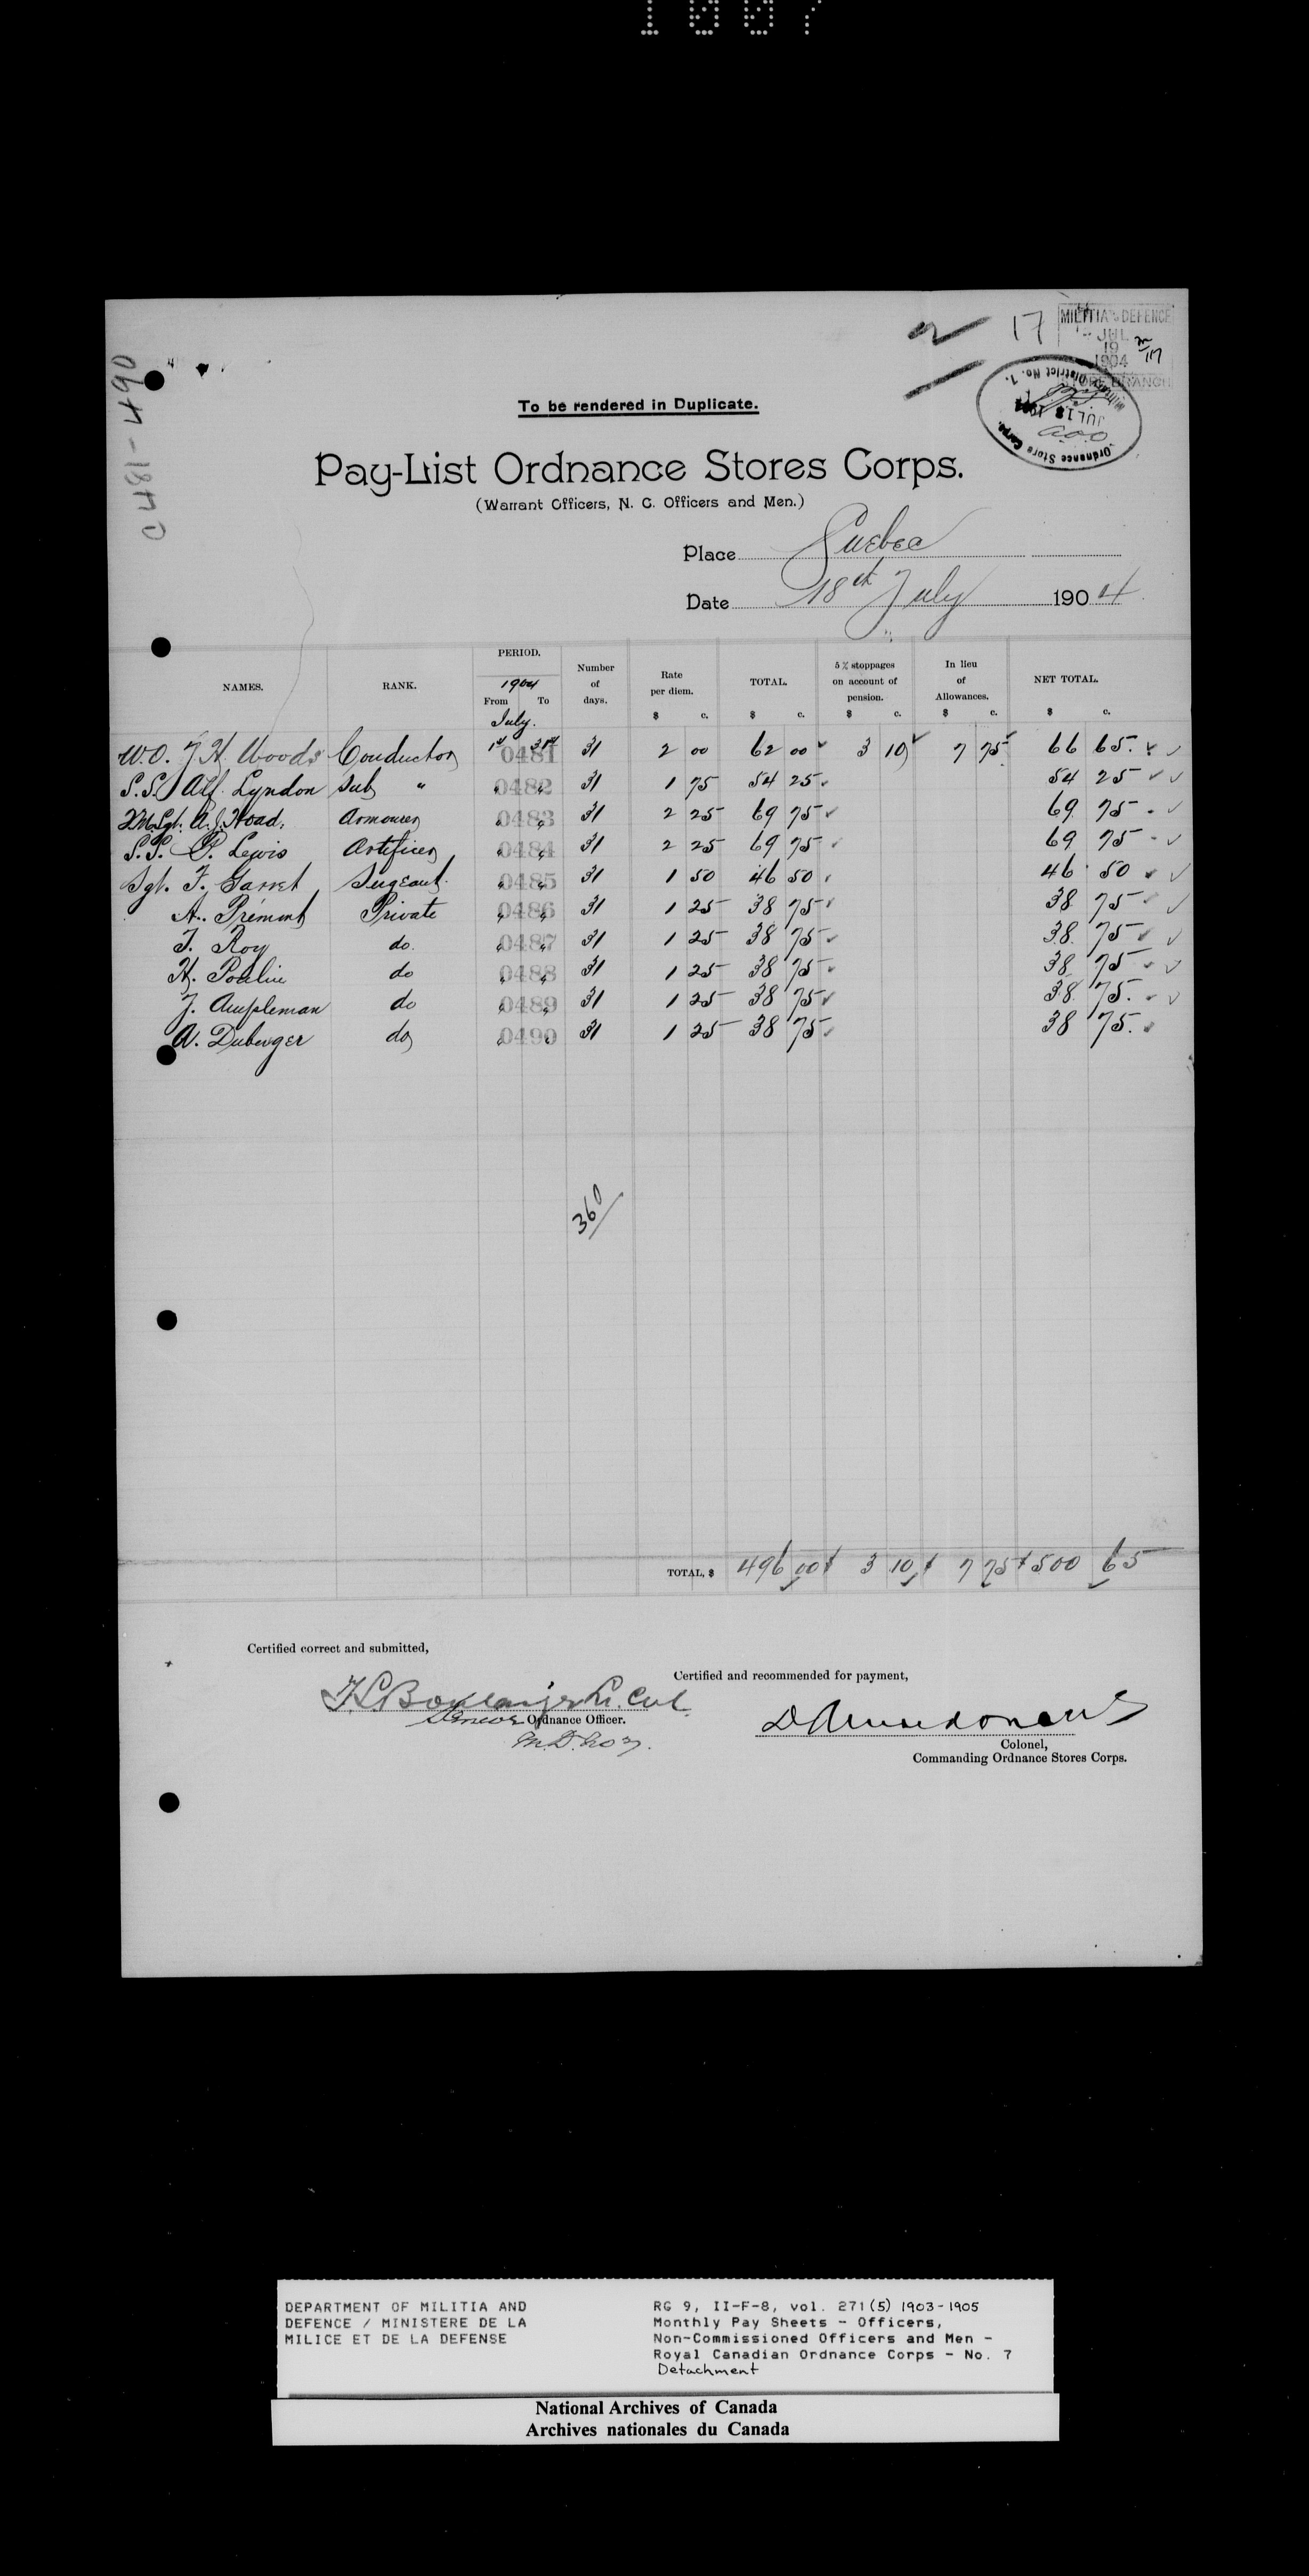 1007
0481-490
17
MILITIA & DEFENCE
JUL
19
1904
STORE BRANCH
Ordnance Store Corps.
JUL 18 1904
Military District No. 7.
To be rendered in Duplicate.
Pay-List Ordnance Stores Corps.
(Warrant Officers, N. C. Officers and Men.)
Place Quebec
Date 18th July 1904
NAMES. RANK. PERIOD. 1904 From To July. Number of days. Rate per diem. $ c. TOTAL. $ c. 5 % stoppages on account of pension. $ c. In lieu of Allowances. $ c. NET TOTAL. $ c.
W.O. J. H. Woods Conductor 1st 31st 0481 31 2 00 62 00 3 10 7 75 66 65.
S.S. Alf. Lyndon Sub " " 0482 " 31 1 75 54 25 54 25
A. J. Hoad. Armourer " 0483 " 31 2 25 69 75 69 75
S.S. P. Lewis Artificer " 0484 " 31 2 25 69 75 69 75
Sgt. F. Garret Sergeant. " 0485 " 31 1 50 46 50 46 50
A. Premont Private " 0486 " 31 1 25 38 75 38 75
J. Roy do. " 0487 " 31 1 25 38 75 38. 75
H. Poulin do " 0488 " 31 1 25 38 75 38 75
J. Ampleman do " 0489 " 31 1 25 38 75 38. 75.
A. Duberger do " 0490 " 31 1 25 38 75 38 75.
360
TOTAL, $ 496 00 3 10 7 75 500 65
Certified correct and submitted,
Certified and recommended for payment,
Lt. Col.
Senior Ordnance Officer.
M.D. No 7.
Colonel,
Commanding Ordnance Stores Corps.
DEPARTMENT OF MILITIA AND
DEFENCE / MINISTERE DE LA
MILICE ET DE LA DEFENSE
RG 9, II-F-8, vol. 271(5) 1903-1905
Monthly Pay Sheets - Officers,
Non-Commissioned Officers and Men -
Royal Canadian Ordnance Corps - No. 7
Detachment
National Archives of Canada
Archives nationales du Canada